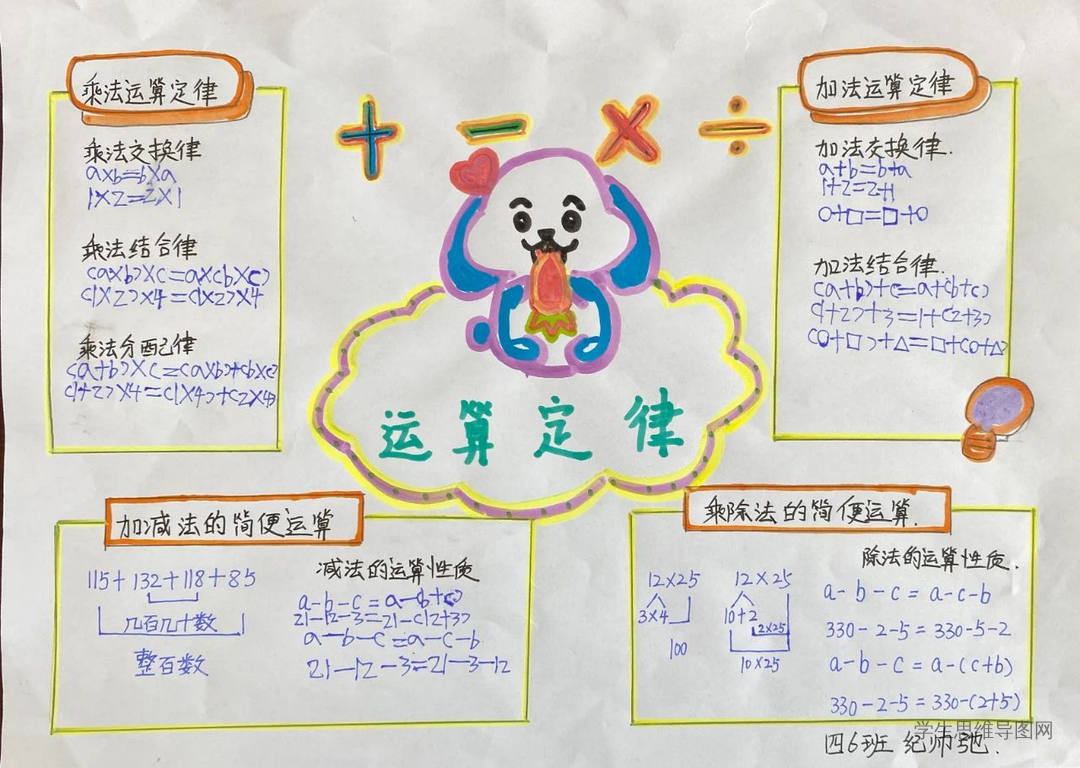 乘法运算定律
乘法交换律
a×b=b×a
1×2=2×1
乘法结合律
(a×b)×c=a×(b×c)
(1×2)×4=(1×2)×4
乘法分配律
(a+b)×c=(a×b)+(b×c)
(1+2)×4=(1×4)+(2×4)
+ − × ÷
运算定律
加法运算定律
加法交换律.
a+b=b+a
1+2=2+1
○+□=□+○
加法结合律.
(a+b)+c=a+(b+c)
(1+2)+3=1+(2+3)
(○+□)+△=□+(○+△)
加减法的简便运算
115+132+118+85
几百几十数
整百数
减法的运算性质
a-b-c=a-(b+c)
21-12-3=21-(12+3)
a-b-c=a-c-b
21-12-3=21-3-12
乘除法的简便运算.
12×25
3×4
100
12×25
10+2
2×25
10×25
除法的运算性质.
a-b-c=a-c-b
330-2-5=330-5-2
a-b-c=a-(c+b)
330-2-5=330-(2+5)
学生思维导图网
四6班 纪帅驰.